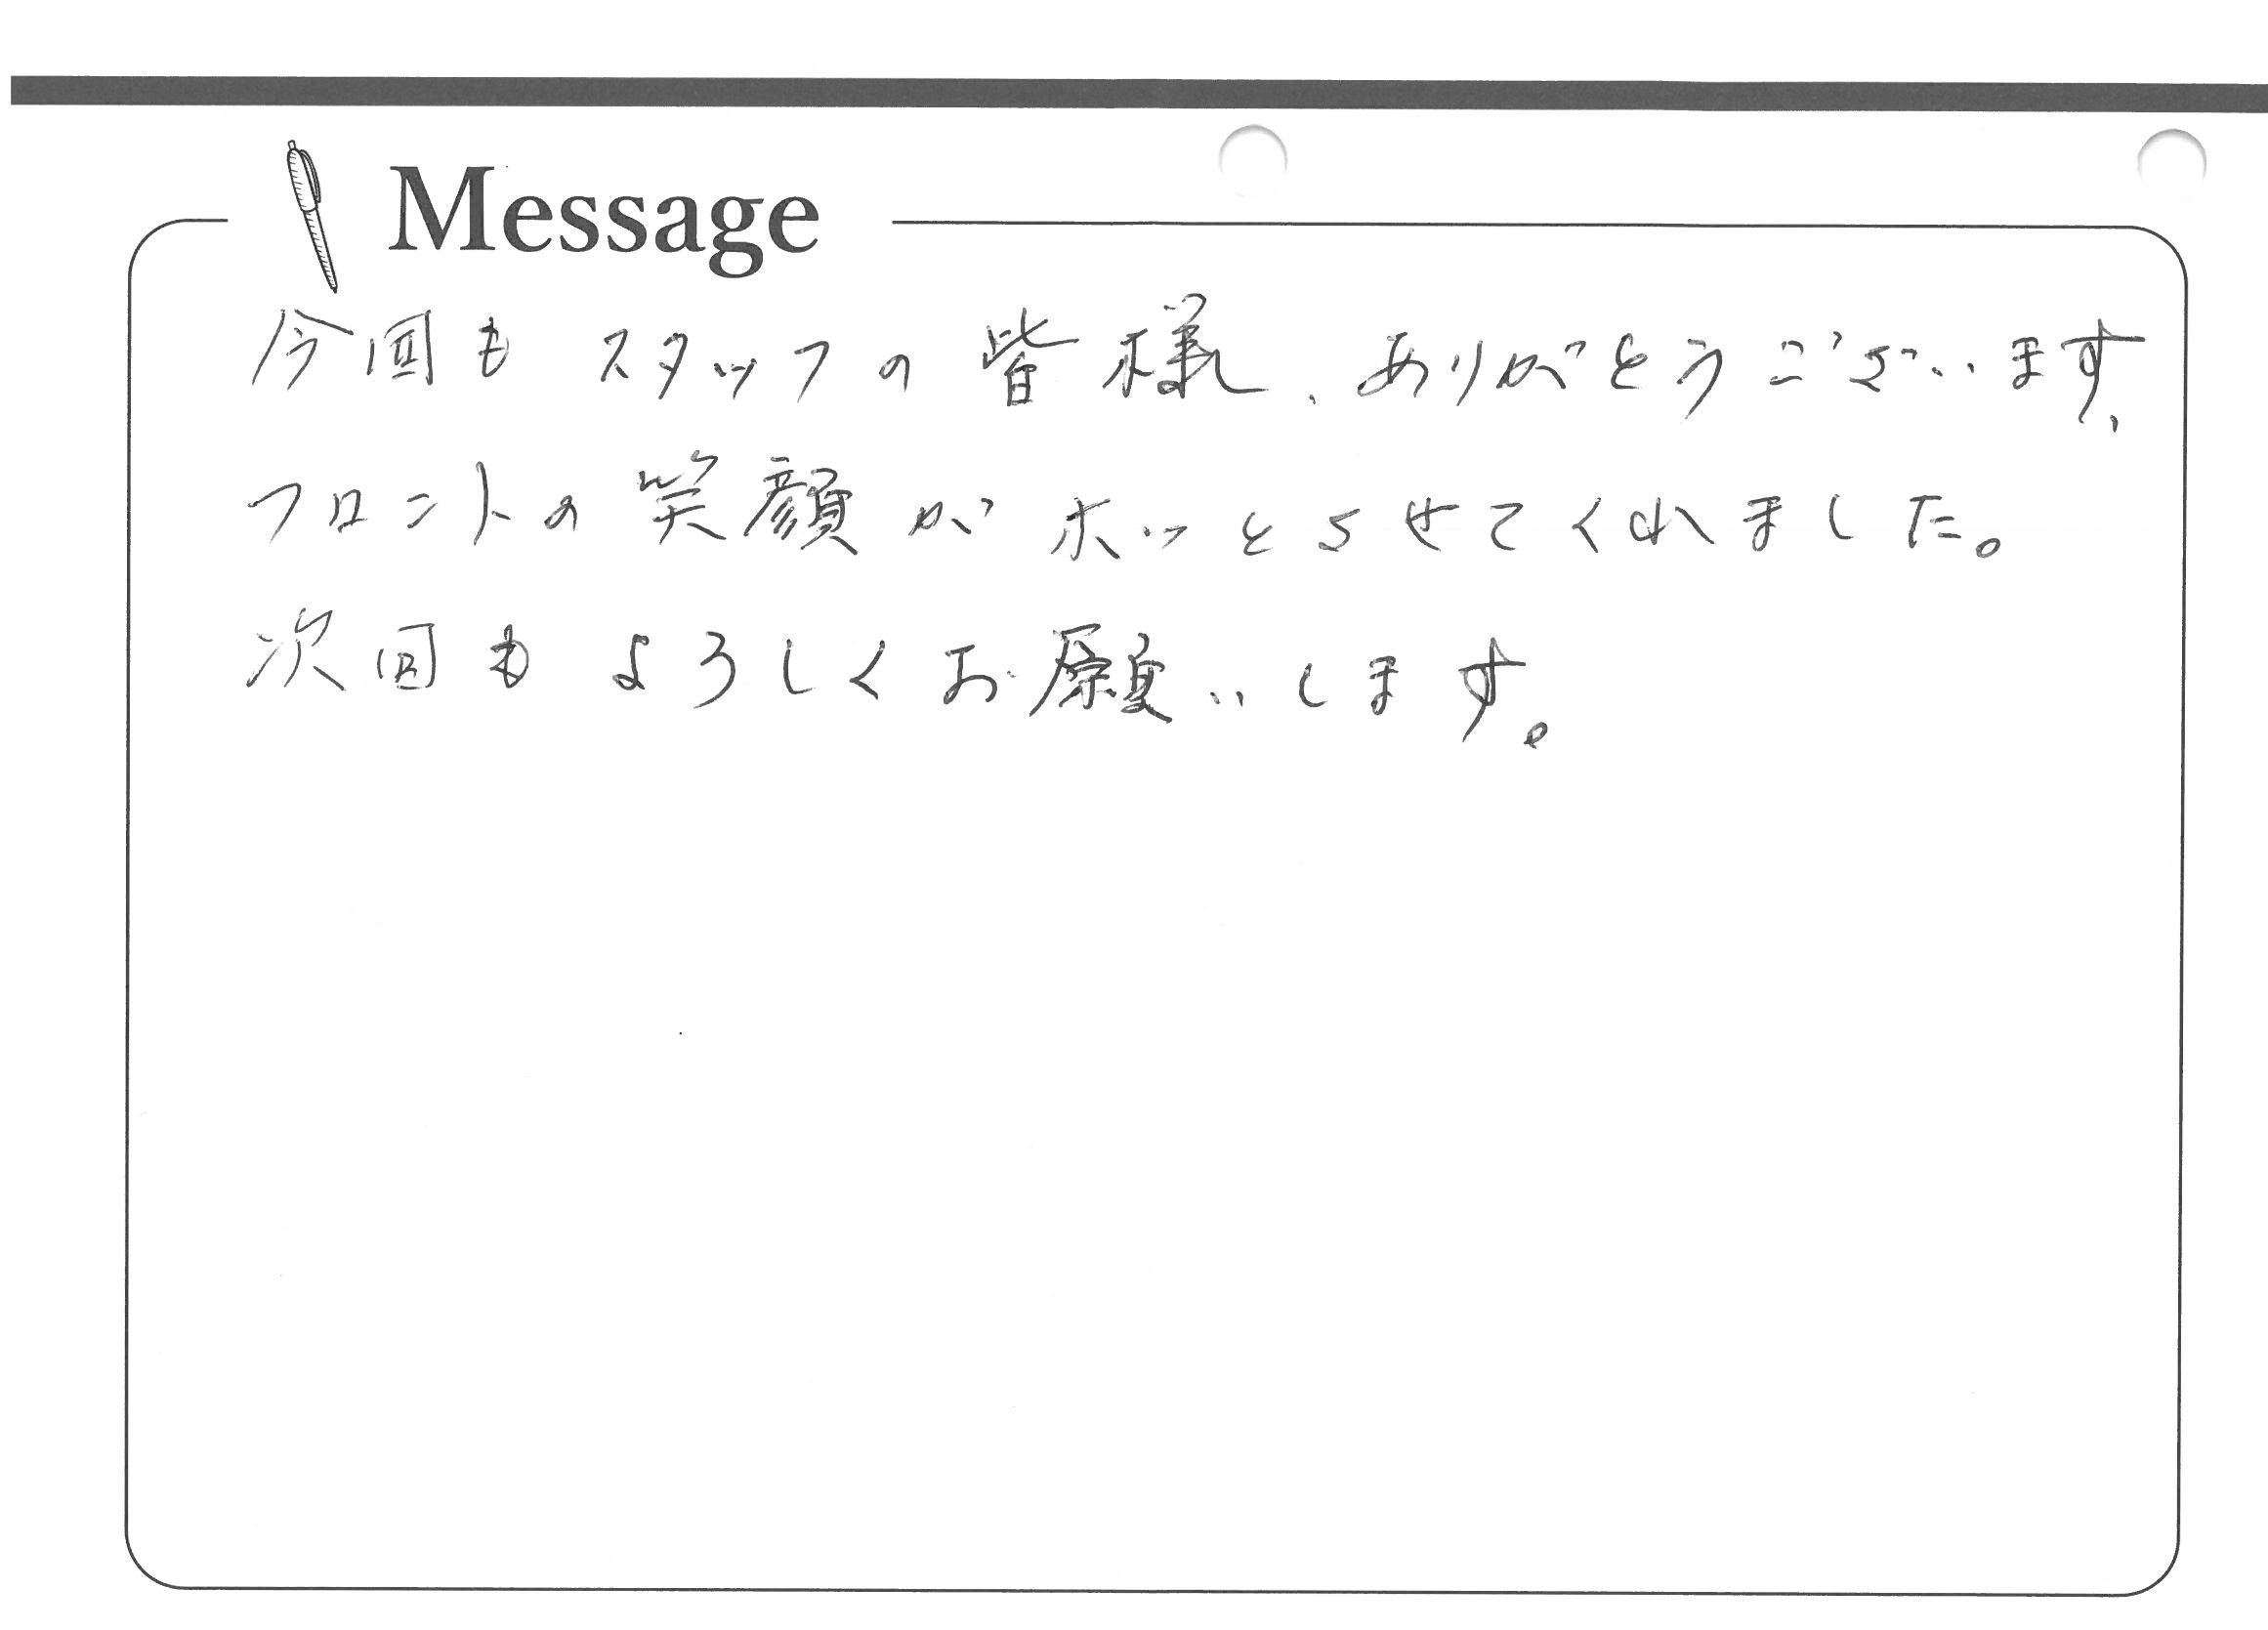 Message
今回もスタッフの皆様、ありがとうございます、
フロントの笑顔がホッとさせてくれました。
次回もよろしくお願いします。